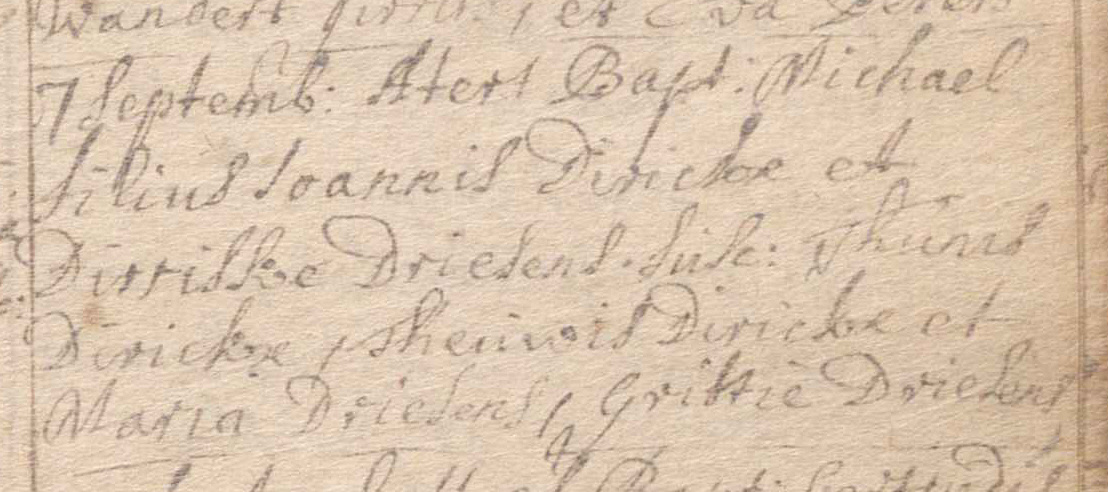 Wandert et Eva
7 Septemb: Atert Bapt: Michael
filius Joannis Dirickx et
Dirriskze Driesens. Susc: Thunis
Dirickx, Theuwis Dirickx et
Maria Driesens, Grittie Driesens
Bapt: